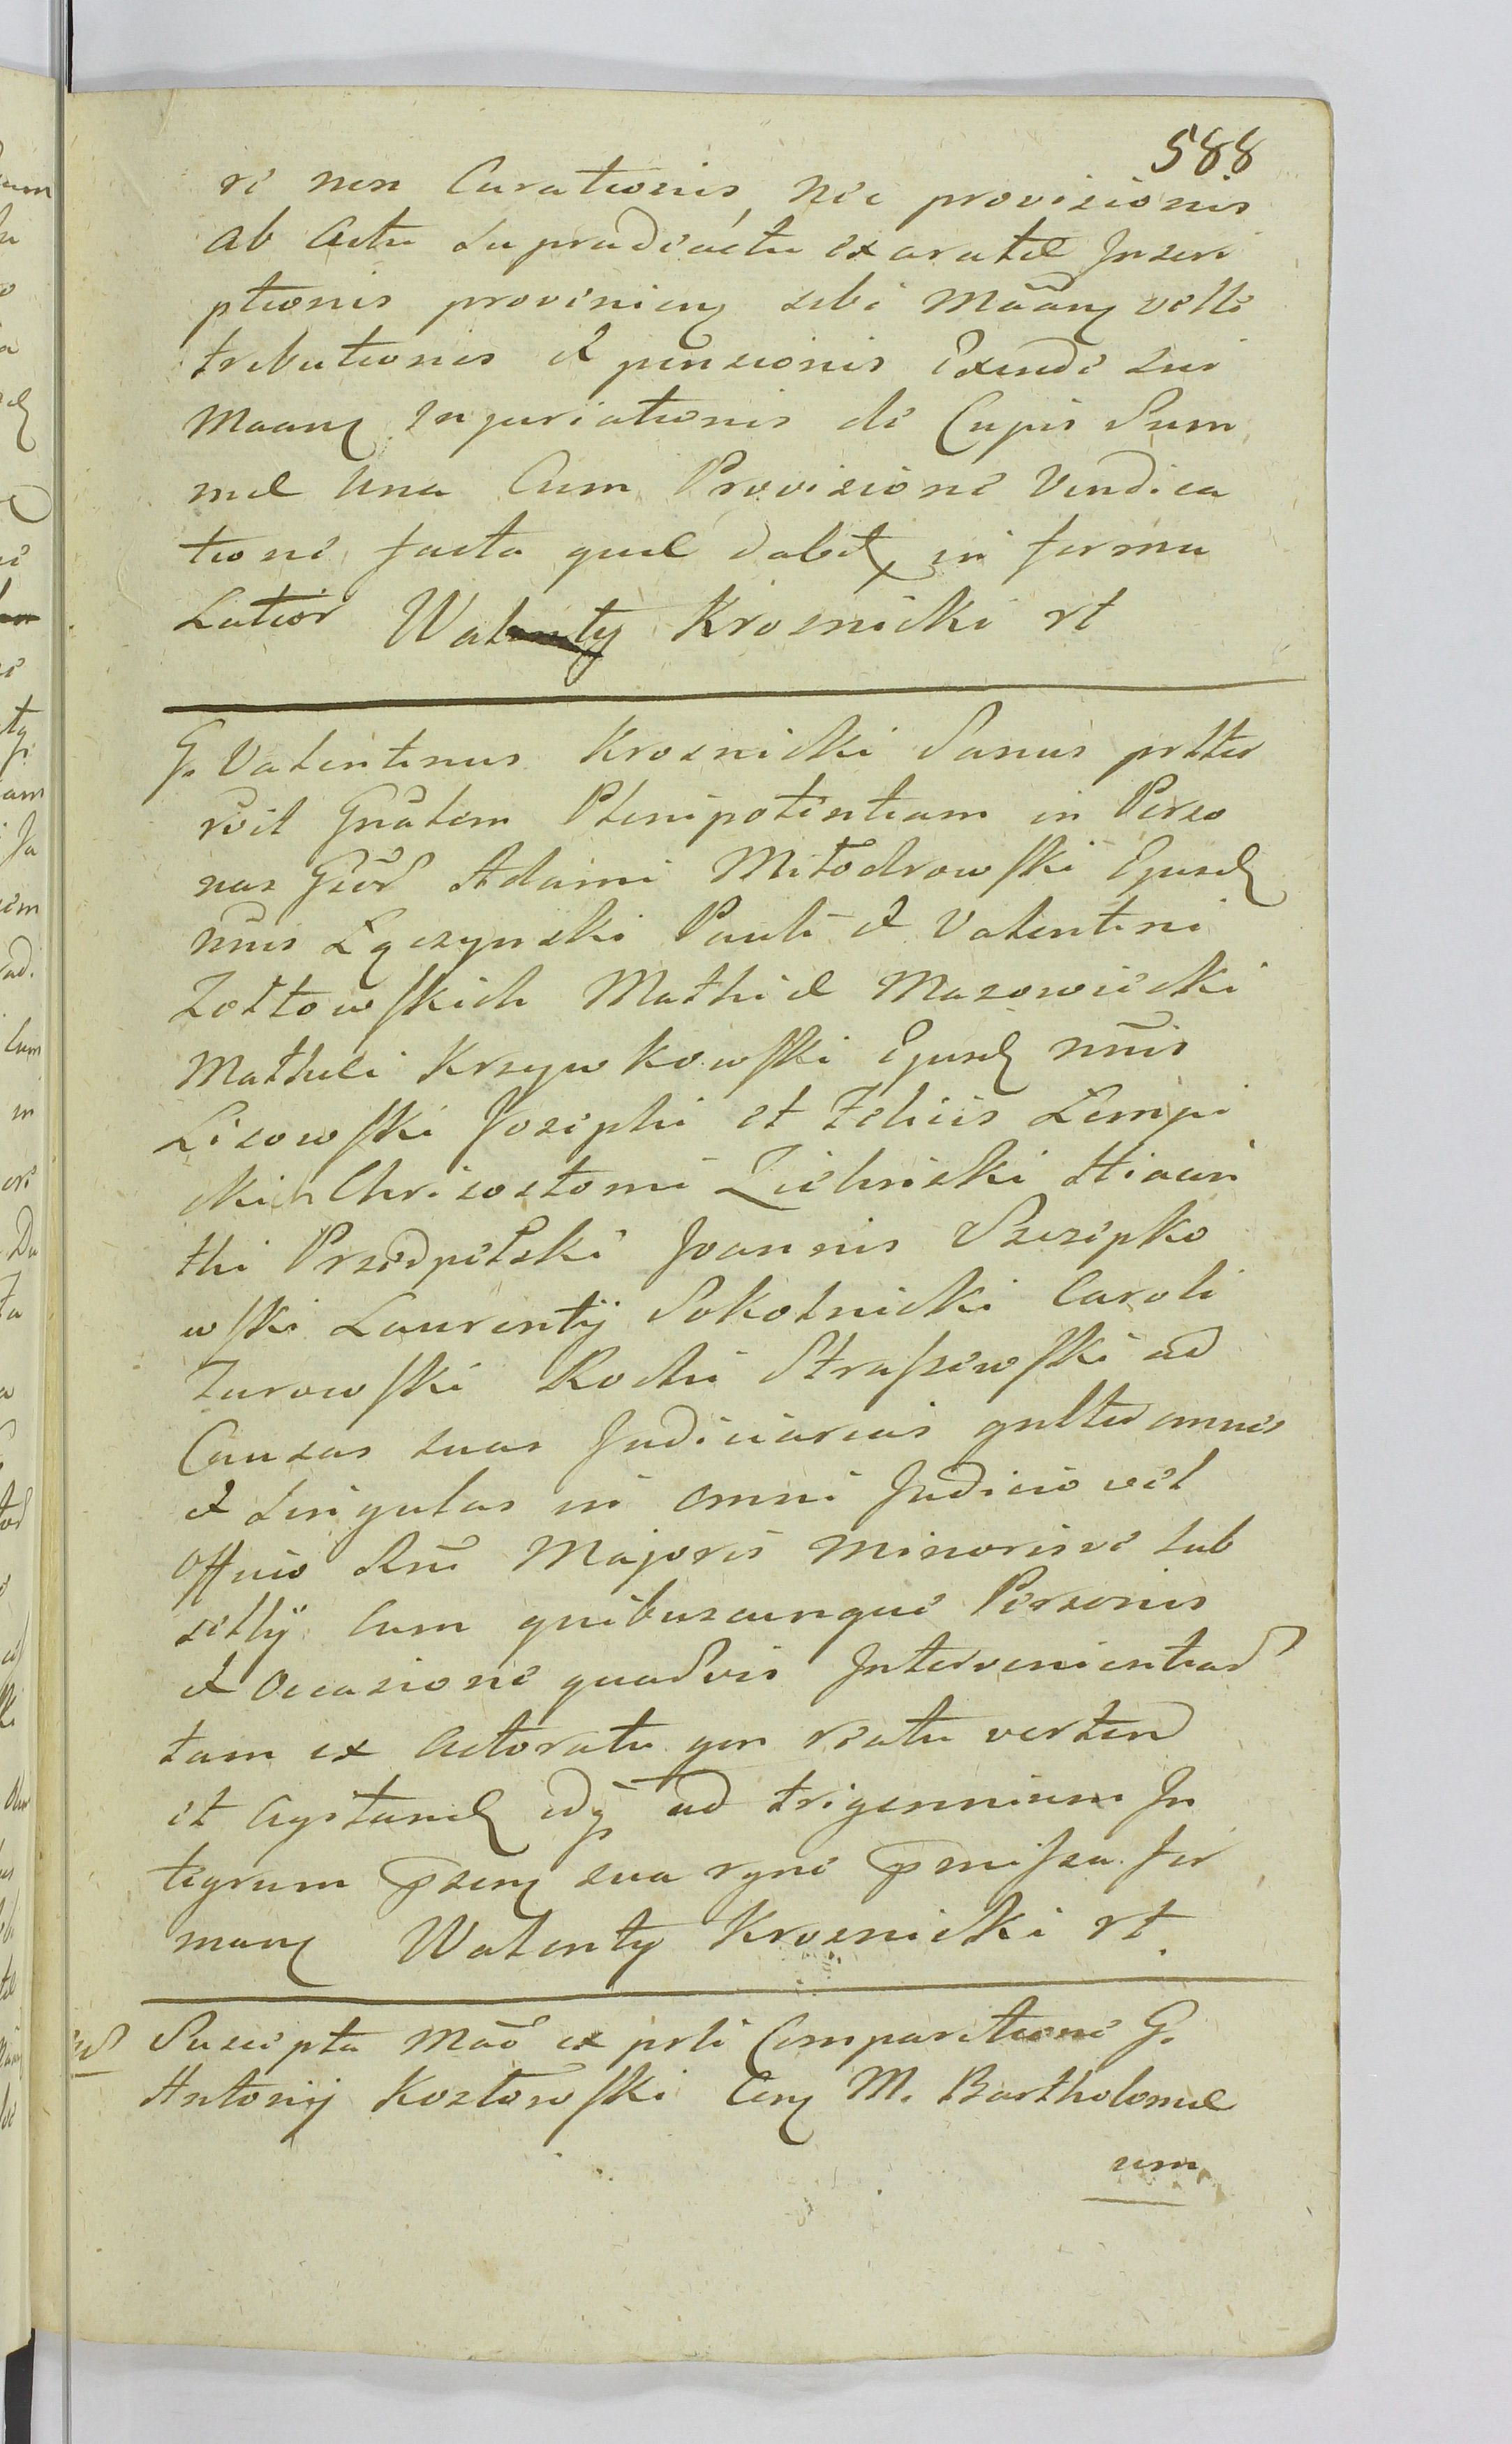 588
re non Curationis, nec provisionis
ab Actu Supradicatu exaratae Inscri
ptionis proveniem sibi Māām velle
tributionis et pensionis Exinde sui
Maam injuriationis de Cujus Sum
mae una Cum Provisione Vindica
tione facta quae dabit in forma
Latior Walenty Krosnicki rt
G. Valentinus Krosnicki Sanus prtter
rvit Gnātem Plenipotentiam in Perso
nas Gsōr Adami Miłodrowski Ejusd
nn̄is Łączynski Pauli et Valentini
Zołtowskich Mathiae Mazowiecki
Mathaei Krzywkowski Ejusd nn̄is
Lisowski Josephi et Felicis Lempi
ckich Chrisostomi Zielinski Hiacin
thi Przedpełski Joannis Szczepko
wski Laurentij Sokolnicki Caroli
Zurowski Rochi Straszewski ad
Causas suas Judiciarias gnltter omnes
et Singulas in omni Judicio vel
Officio Rn̄i Majoris minorisve sub
sellij cum quibuscunque Personis
et Occasione quadvis Intervenientiad
tam ex Actoratu qm reatu verten
et Agitand idq ad trigennium In
tegrum p̄sem sua rgne p̄missa fir
mam Walenty Krosnicki rt
Suscepta Māo ex prti Comparitione G.
Antonij Kozłowski Cem M. Bartholomae
um